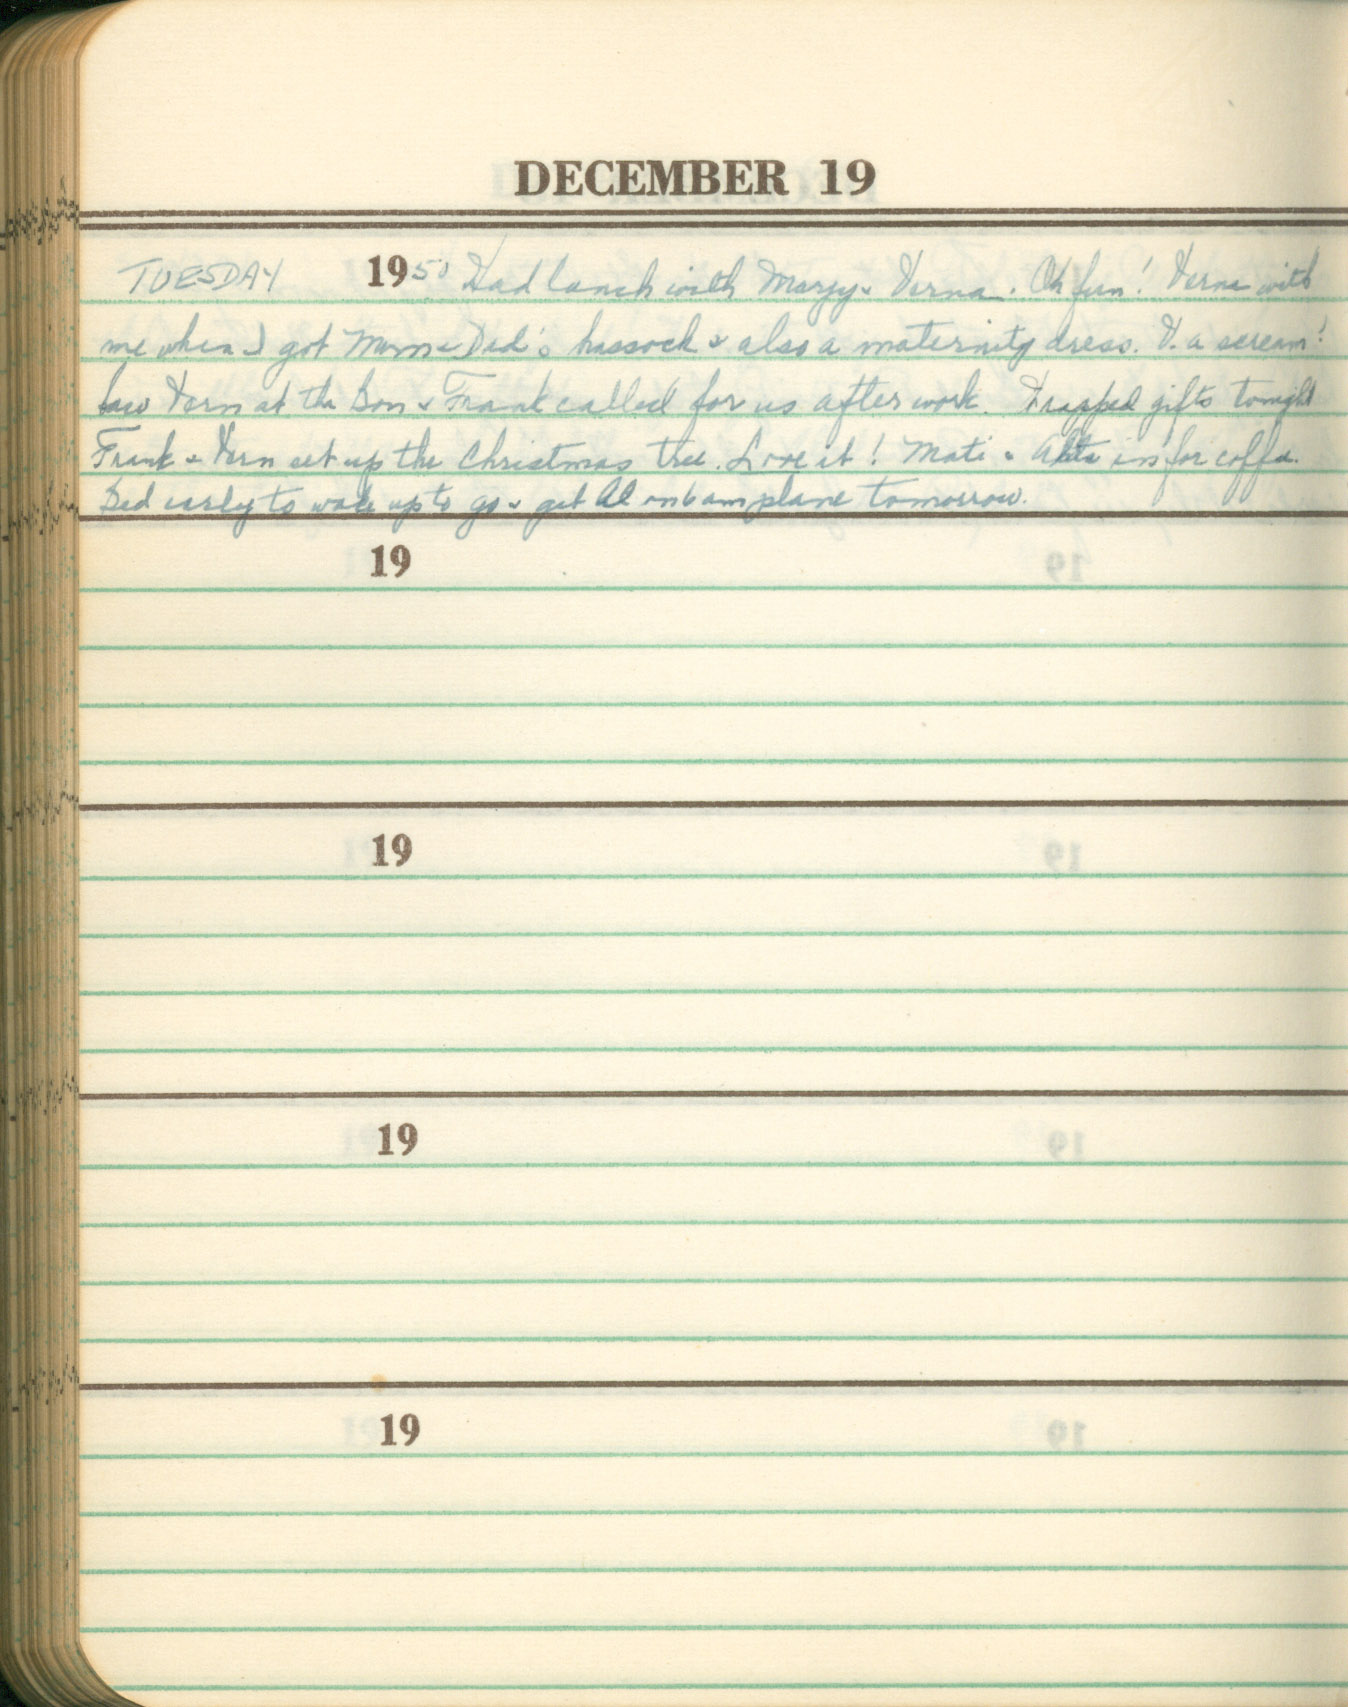 DECEMBER 19
TUESDAY 1950 Had lunch with Margy & Verna. Oh fun! Verna with
me when I got Mom & Dad's hassock & also a maternity dress. V. a scream!
Saw Vern at the Bon & Frank called for us after work. Wrapped gifts tonight
Frank & Vern set up the Christmas tree. Love it! Mati & in for coffee.
Bed early to wake up to go & get Al on 6 am plane tomorrow.
19
19
19
19